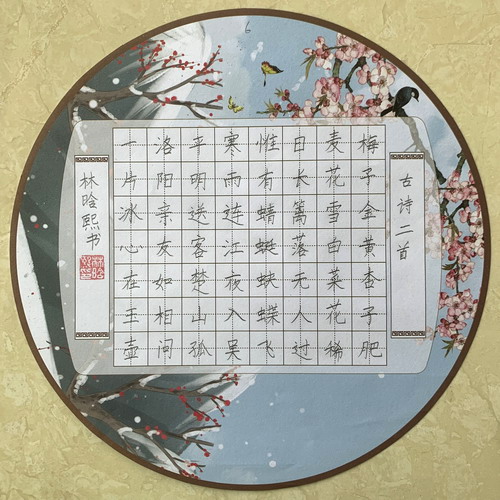 古诗二首
梅子金黄杏子肥
麦花雪白菜花稀
日长篱落无人过
惟有蜻蜓蛱蝶飞
寒雨连江夜入吴
平明送客楚山孤
洛阳亲友如相问
一片冰心在玉壶
林晗熙书